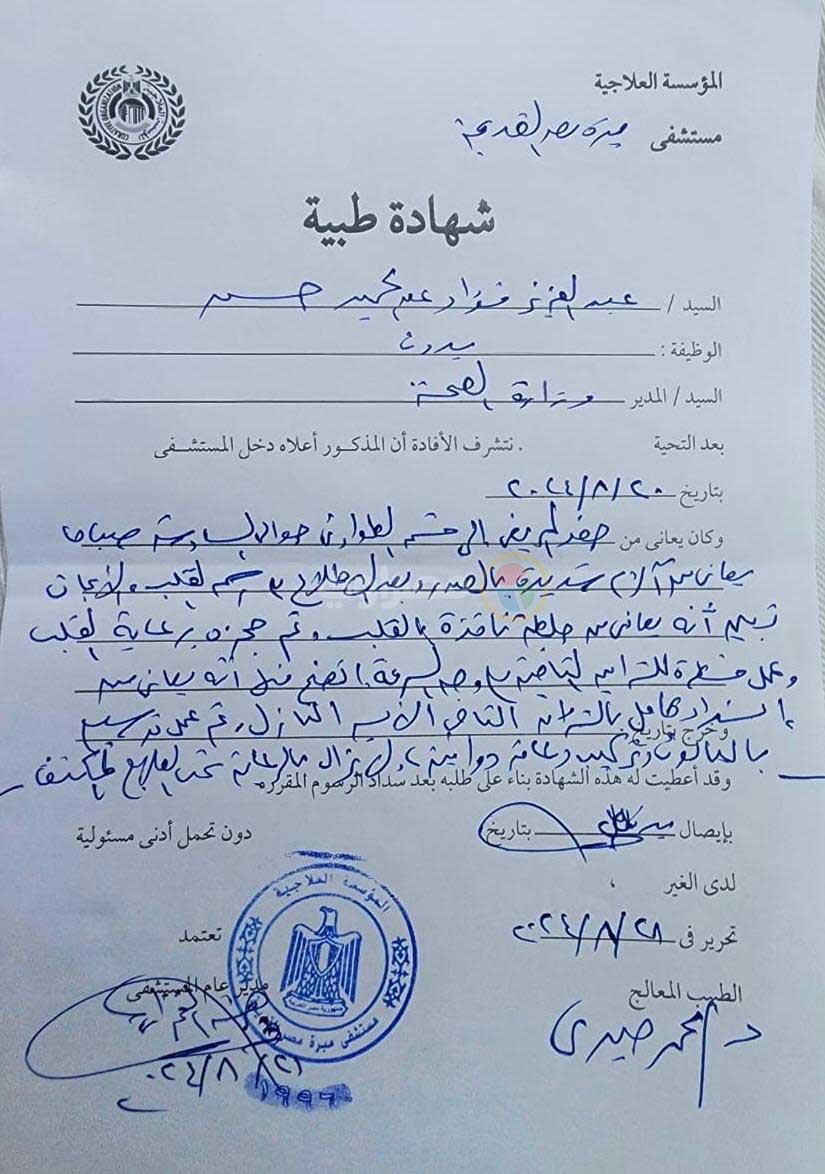 المؤسسة العلاجية
CURATIVE ORGANIZATION
مستشفى مبرة مصر القديمة
شهادة طبية
السيد / عبد العزيز فؤاد عبد الحميد حسن
الوظيفة :
السيد / المدير وزارة الصحة
بعد التحية . نتشرف الأفادة أن المذكور أعلاه دخل المستشفى
بتاريخ ٢٠٢٤/٨/٢٠
وكان يعانى من حضر المريض الى قسم الطوارئ حوالى السادسة صباحا
يعانى من آلام شديدة بالصدر وبعد الاطلاع على رسم القلب والأبحاث
تبين أنه يعانى من جلطة نافذة بالقلب وتم حجزه برعاية القلب
وعمل قسطرة للشرايين التاجية على وجه السرعة اتضح منها أنه يعانى من
إنسداد كامل بالشريان التاجى الأيسر النازل وتم عمل توسيع
وخرج بتاريخ
بالبالون وتركيب دعامة دوائية ولا يزال بالرعاية تحت العلاج المكثف
وقد أعطيت له هذه الشهادة بناء على طلبه بعد سداد الرسوم المقرره
بإيصال بتاريخ دون تحمل أدنى مسئولية
لدى الغير
تحرير فى ٢٠٢٤/٨/٢١
تعتمد
الطبيب المعالج مدير عام المستشفى
د/ محمد صبرى
٢٠٢٤/٨/٢١
المؤسسة العلاجية
جمهورية مصر العربية
مستشفى مبرة مصر
١٩٩٦